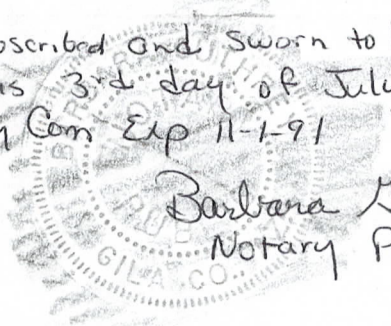 oscribed and sworn to
is 3rd day of July
Com Exp 11-1-91
Barbara
Notary P
GILA CO.